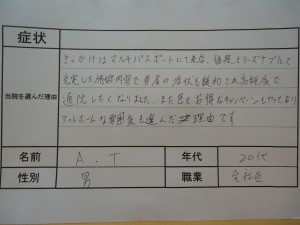 症状
当院を選んだ理由
きっかけはマルチパスポートにて来店。値段もリーズナブルで
充実した施術内容で 肩の症状も緩和され高頻度で
通院したくなりました。また色々お得なキャンペーンもやっており
アットホームな雰囲気も選んだ理由です
名前 A.T 年代 20代
性別 男 職業 会社員